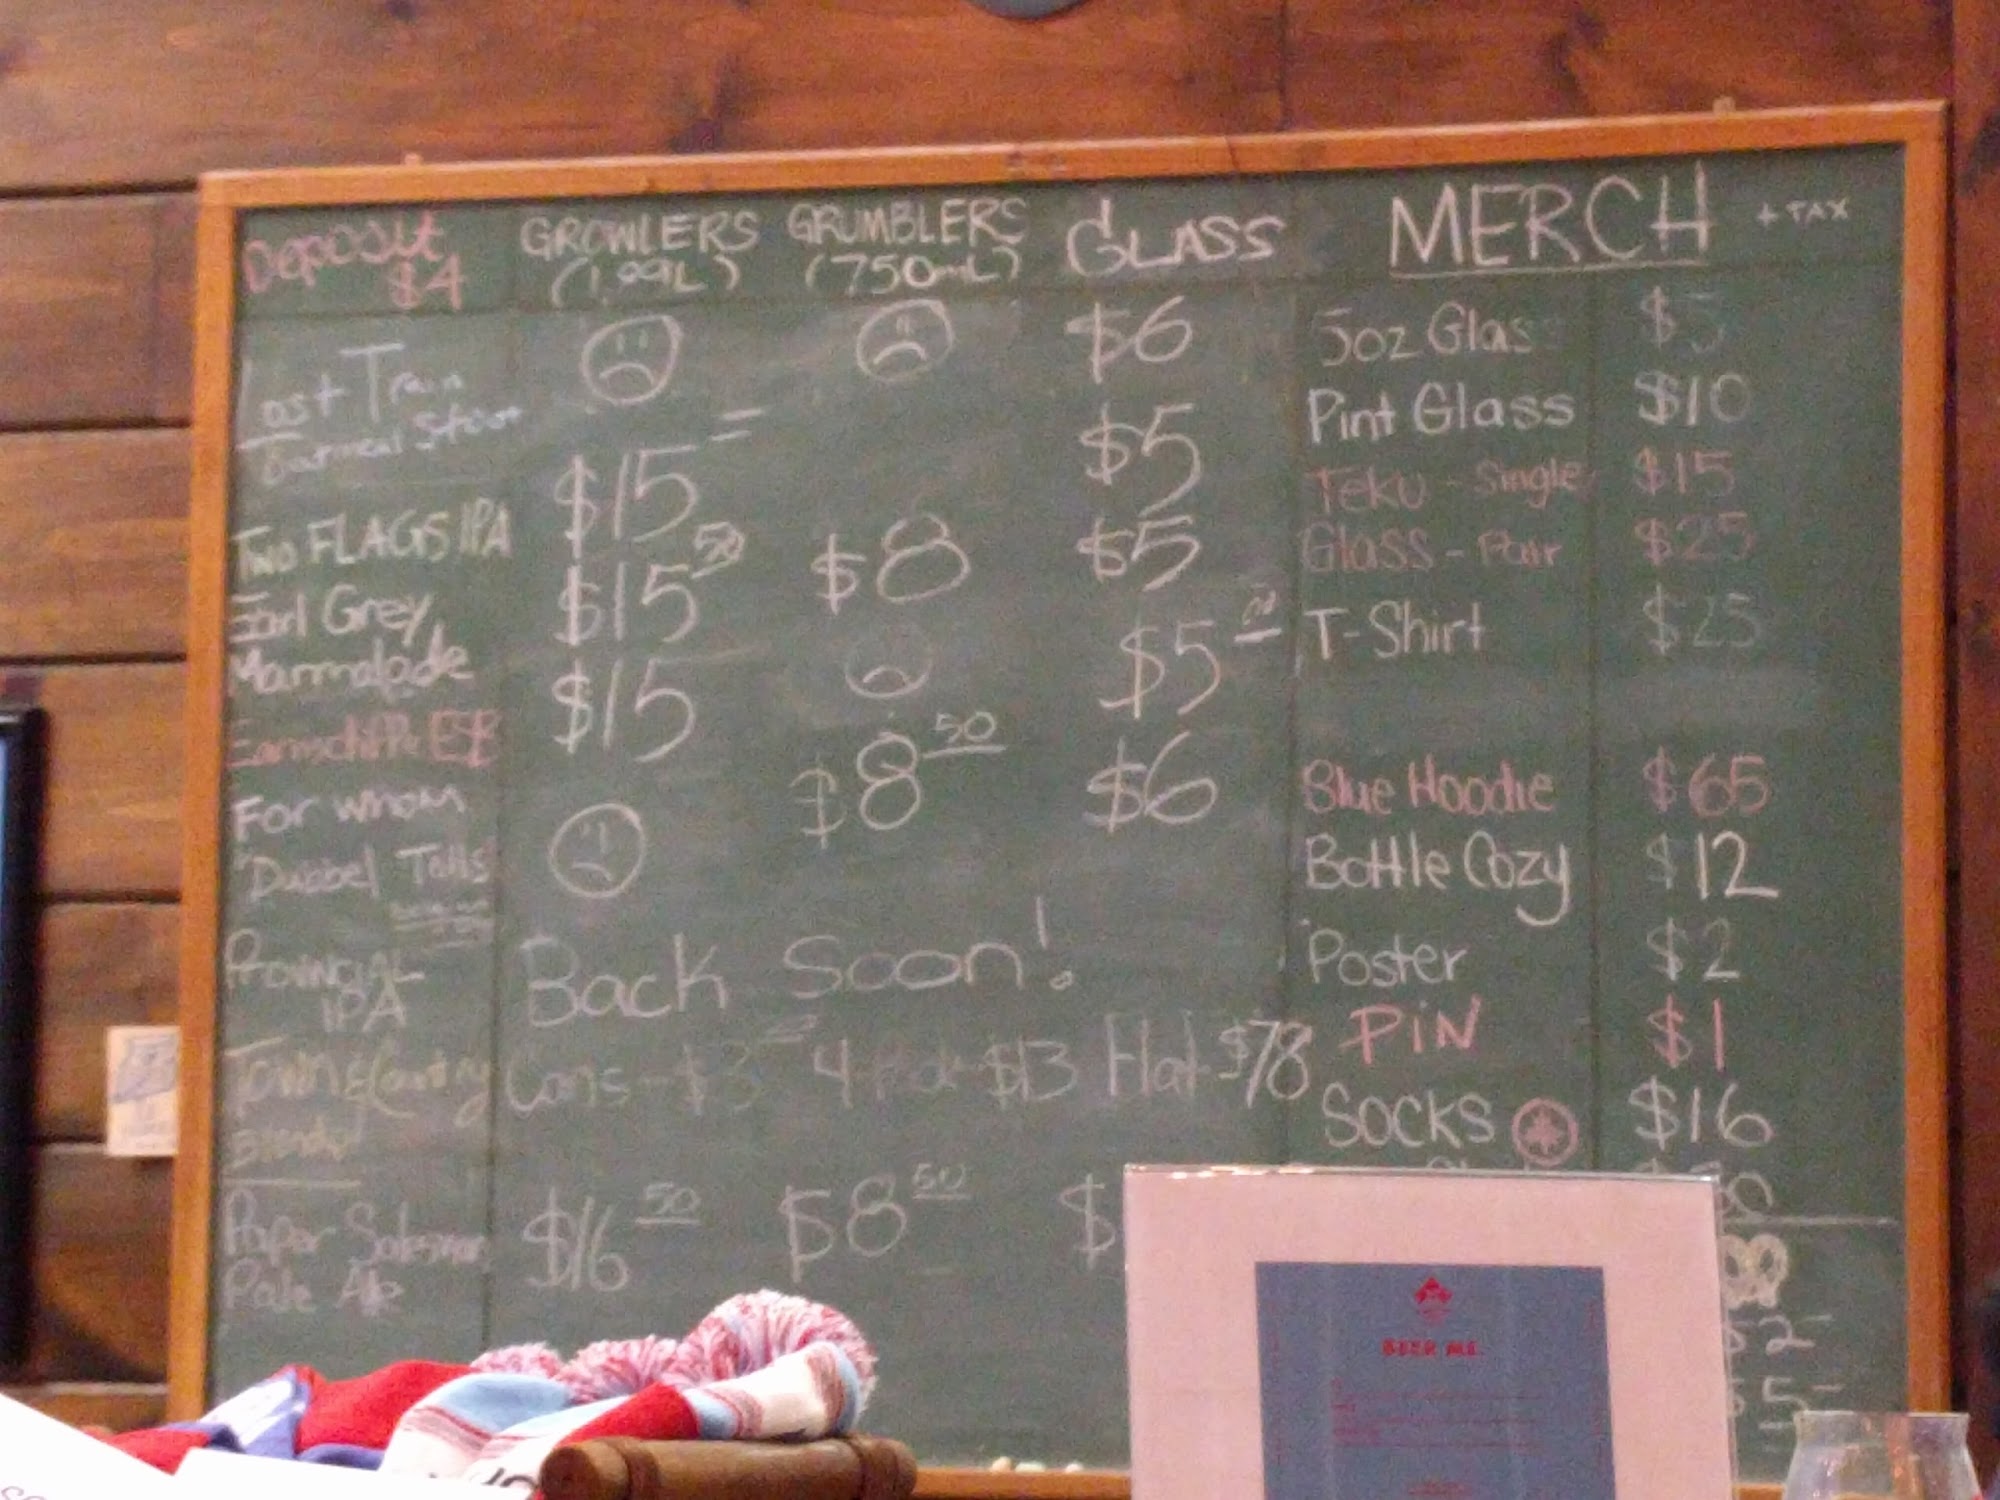 Deposit
$4
GROWLERS
(1.99L)
GRUMBLERS
(750mL)
GLASS
MERCH + TAX
Lost Train
Oatmeal Stout
$6
Two FLAGS IPA
$15
$5
Earl Grey
Marmalade
$15 50
$8
$5
Earnscliffe ESB
$15
$5
For whom
Dubbel Tolls
$8 50
$6
PROVINCIAL
IPA
Back Soon!
Town & Country
Blonde
Cans - $3 4 Pack $13 Flat $78
Paper Salesman
Pale Ale
$16 50
$8 50
$
5oz Glas
$5
Pint Glass
$10
Teku - Single
$15
Glass - Pair
$25
T-Shirt
$25
Blue Hoodie
$65
Bottle Cozy
$12
Poster
$2
PIN
$1
SOCKS
$16
BEER ME